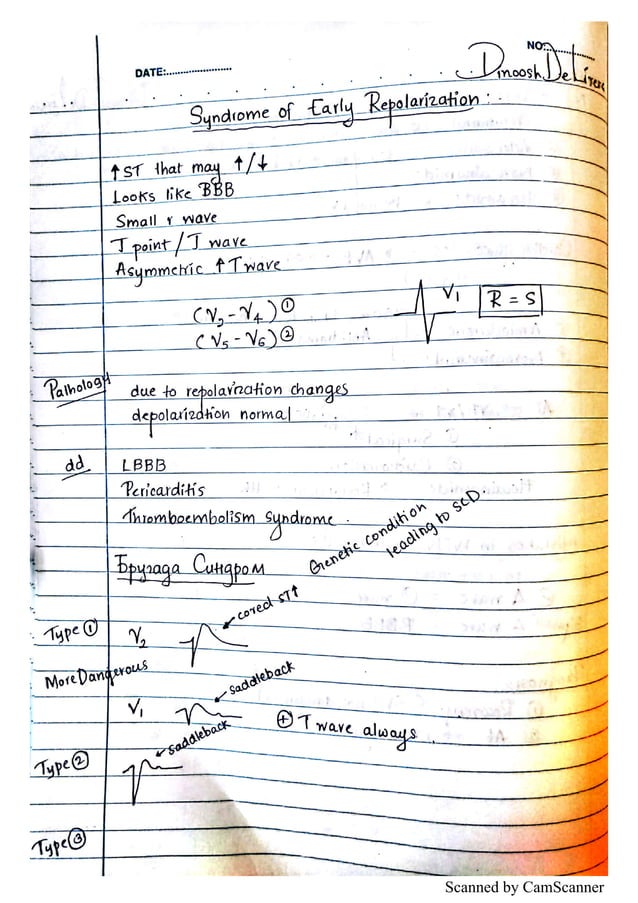 DATE:........................
NO:..............
Dinoosh De Livera
Syndrome of Early Repolarization :
↑ST that may ↑/↓
Looks like BBB
Small r wave
J point / J wave
Asymmetric ↑ T wave
(V₂ - V₄) ①
(V₅ - V₆) ②
V₁ R = S
Pathology due to repolarization changes
depolarization normal
dd LBBB
Pericarditis
Thromboembolism syndrome.
Бругада Синдром
Genetic condition
leading to SCD.
Type ① V₂ cored ST↑
More Dangerous
V₁ saddleback
⊕ T wave always.
Type ② saddleback
Type ③
Scanned by CamScanner